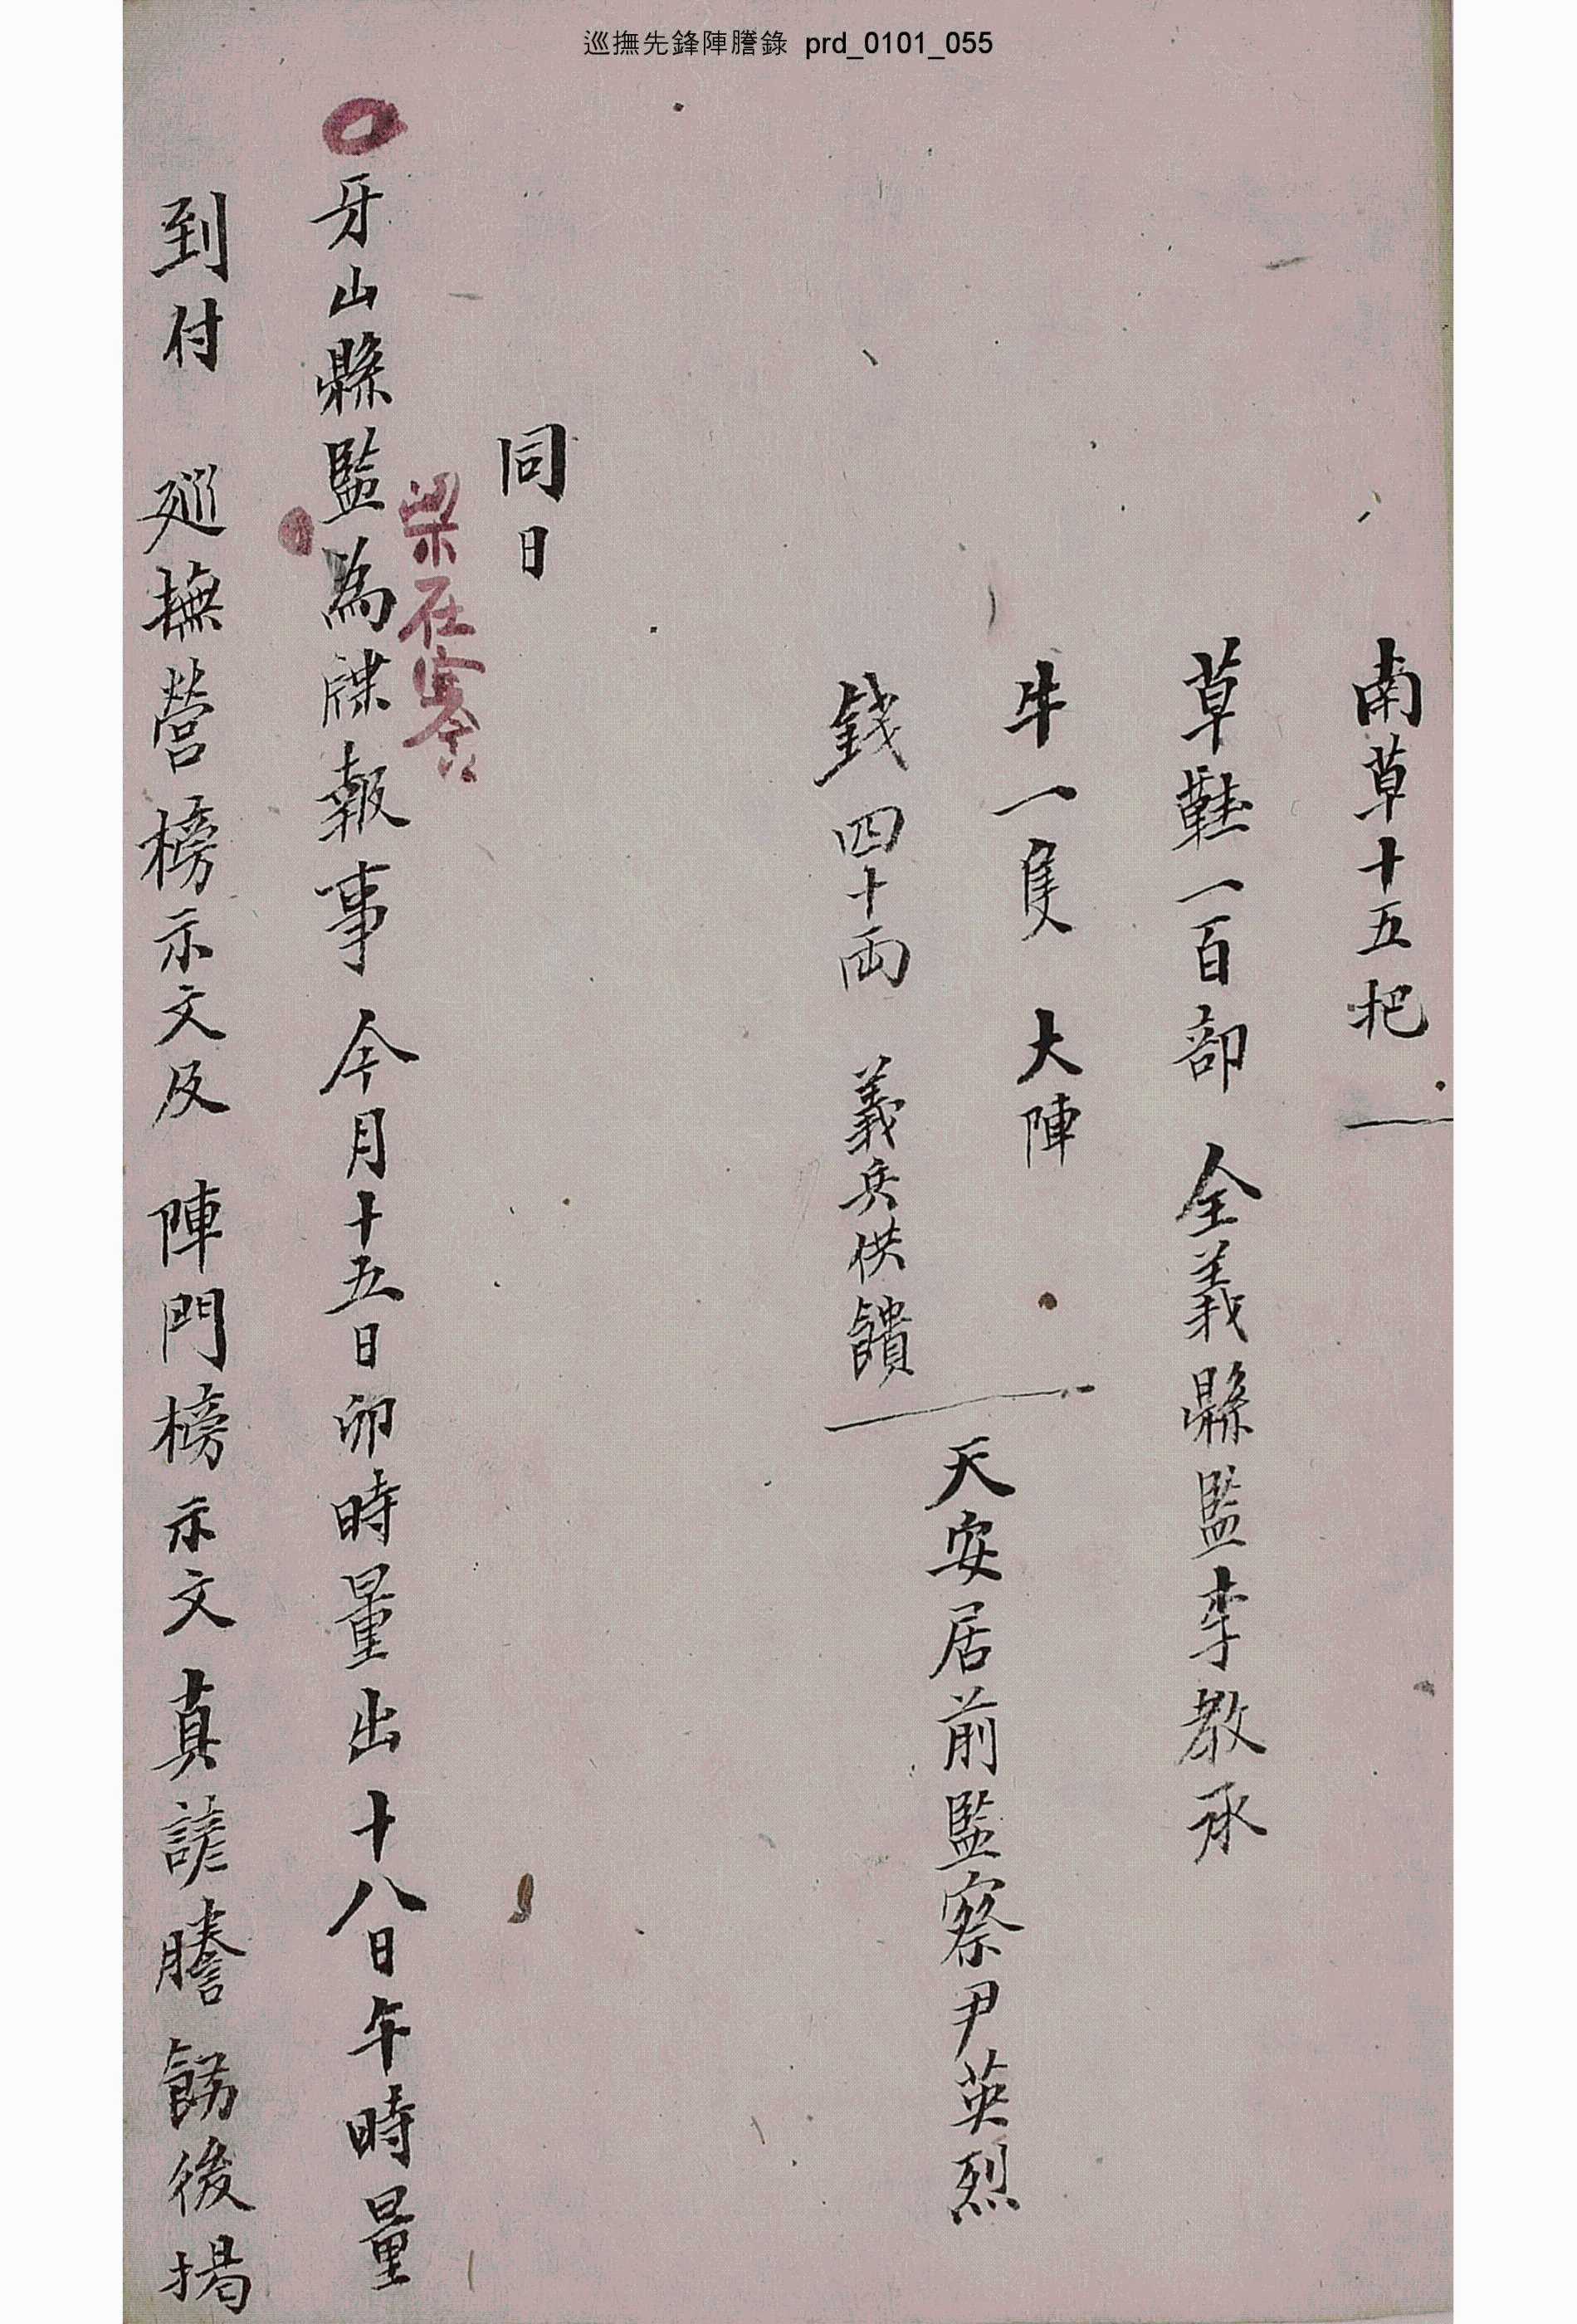 巡撫先鋒陣謄錄 prd_0101_055
南草十五把
草鞋一百部 全義縣監李教承
牛一隻 大陣
錢四十両 義兵供饋
天安居前監察尹英烈
同日
梁在謇
牙山縣監為牒報事今月十五日卯時量出十八日午時量
到付 廵撫營榜示文及 陣門榜示文真諺謄飭後揭